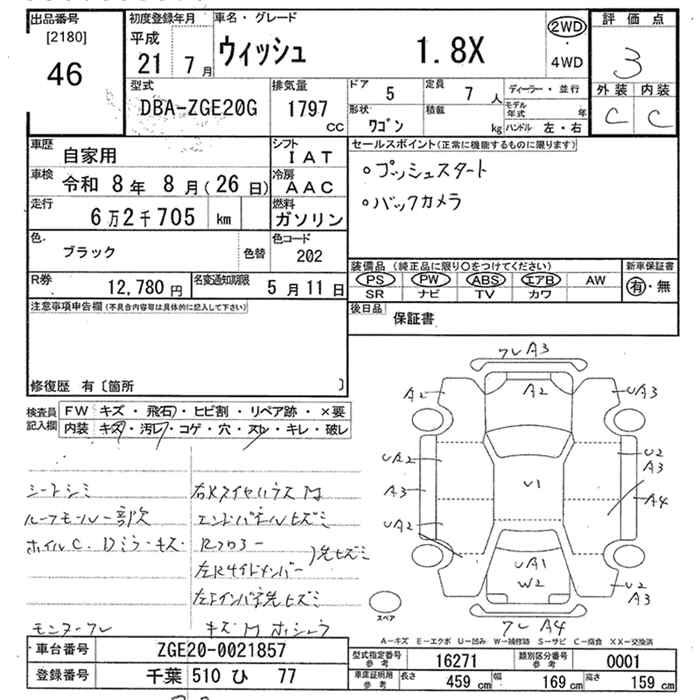 出品番号
[2180]
46
初度登録年月
平成
21 7月
車名・グレード
ウィッシュ 1.8X
2WD
・
4WD
評価点
3
外装 内装
C C
型式
DBA-ZGE20G
排気量
1797
CC
ドア 5
定員 7 人
形状 ワゴン
積載 kg
ディーラー・並行
モデル年式 年
ハンドル 左・右
車歴 自家用
車検 令和 8年 8月(26日)
走行 6万2千705 km
シフト IAT
冷房 AAC
燃料 ガソリン
色. ブラック 色替
色コード 202
R券 12,780円
名変通知期限 5月11日
セールスポイント(正常に機能するものに限ります)
○プッシュスタート
○バックカメラ
装備品(純正品に限り○をつけてください)
PS PW ABS エアB AW
SR ナビ TV カワ
新車保証書
有・無
後日品 保証書
注意事項申告欄(不具合内容等は具体的に記入して下さい)
修復歴 有〔箇所 〕
検査員記入欄
FW キズ・飛石・ヒビ割・リペア跡・×要
内装 キズ・汚レ・コゲ・穴・スレ・キレ・破レ
シートシミ
ルーフモール一部欠
ホイルC. Dミラーキズ
モニターワレ
エンドパネルヒズミ
Rフロアー
左Rサイドメンバー
ワレA3
A2
A2
UA3
UA2
U2
A3
A3
U1
A4
UA2
UA1
W2
U2
A3
ワレA4
スペア
A-キズ E-エクボ U-凹み W-補修跡 S-サビ C-腐食 XX-交換済
車台番号 ZGE20-0021857
登録番号 千葉 510 ひ 77
型式指定番号
参考
16271
類別区分番号
参考
0001
車庫証明用
参考
長さ 459 cm 幅 169 cm 高さ 159 cm